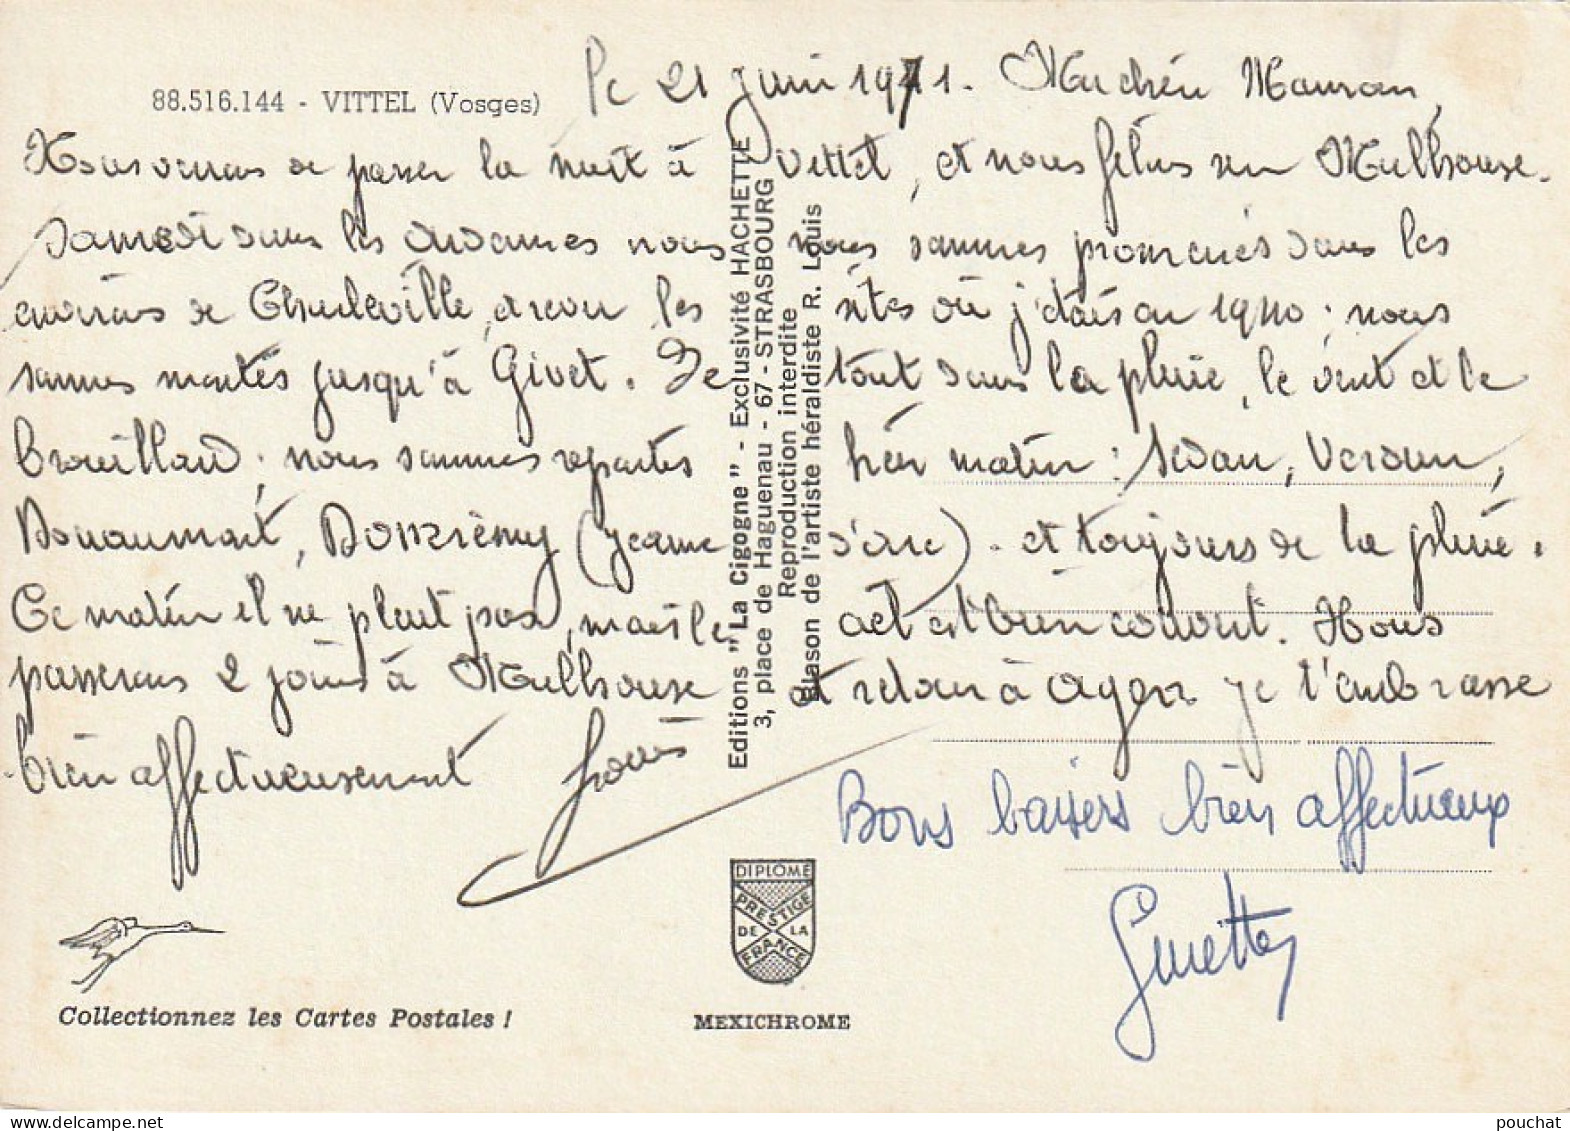 88.516.144 - VITTEL (Vosges)
le 21 Juin 1971. Ma chère Maman,
Nous venons de passer la nuit à Vittel, et nous filons sur Mulhouse.
Samedi dans les Ardennes nous nous sommes promenés dans les
environs de Charleville, et revu les sites où j'étais en 1940 ; nous
sommes montés jusqu'à Givet. Le tout sous la pluie, le vent et le
brouillard ; nous sommes repartis hier matin : Sedan, Verdun,
Douaumont, Domrémy (Jeanne d'Arc). et toujours de la pluie.
Ce matin il ne pleut pas, mais le ciel est bien couvert. Nous
passerons 2 jours à Mulhouse et retour à Agen. Je t'embrasse
bien affectueusement Louis
Bons baisers bien affectueux
Ginette
Editions "La Cigogne" - Exclusivité HACHETTE
3, place de Haguenau - 67 - STRASBOURG
Reproduction interdite
Blason de l'artiste héraldiste R. Louis
DIPLÔME
PRESTIGE
DE LA
FRANCE
Collectionnez les Cartes Postales !
MEXICHROME
pouchat